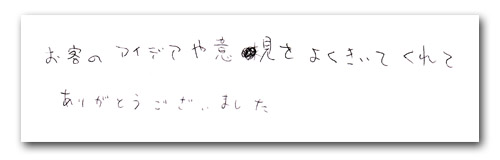 お客のアイデアや意見をよくきいてくれて
ありがとうございました